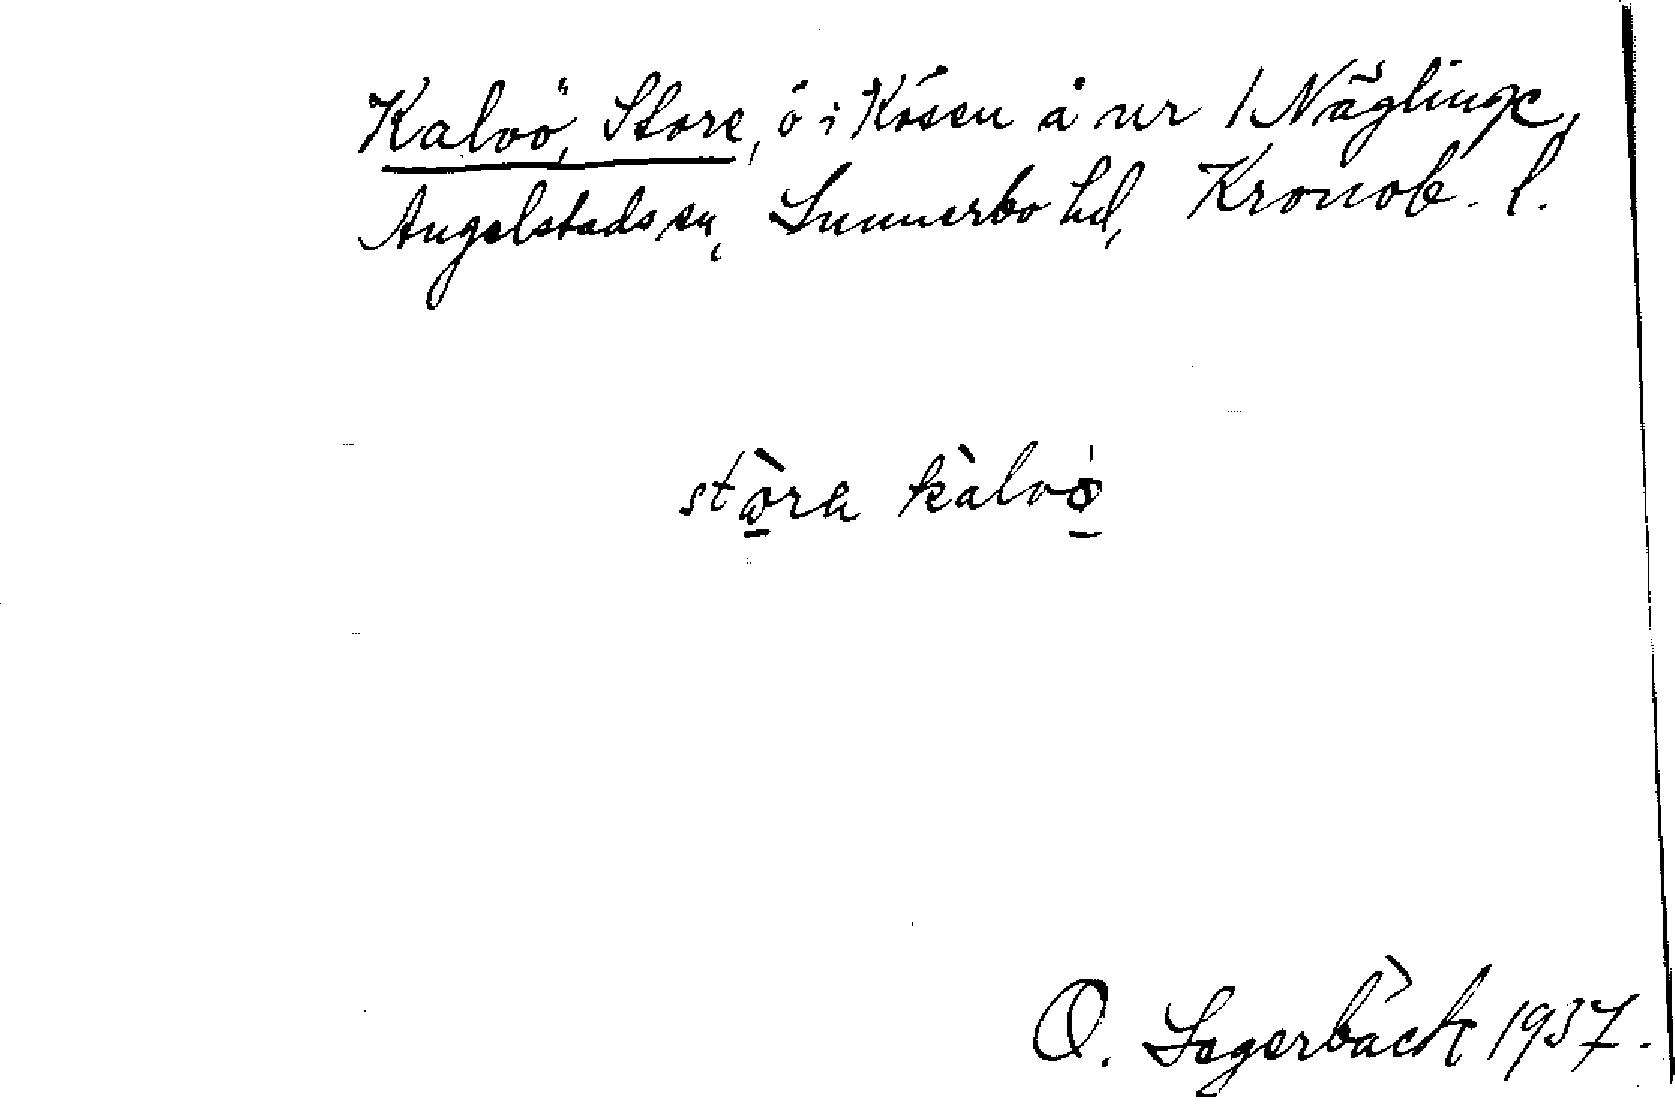 Kalvö, Store, ö i Kösen å nr 1 Näglinge,
Angelstads sn, Sunnerbo hd, Kronob. l.
stòra kàlvö
O. Segerbäck 1937.